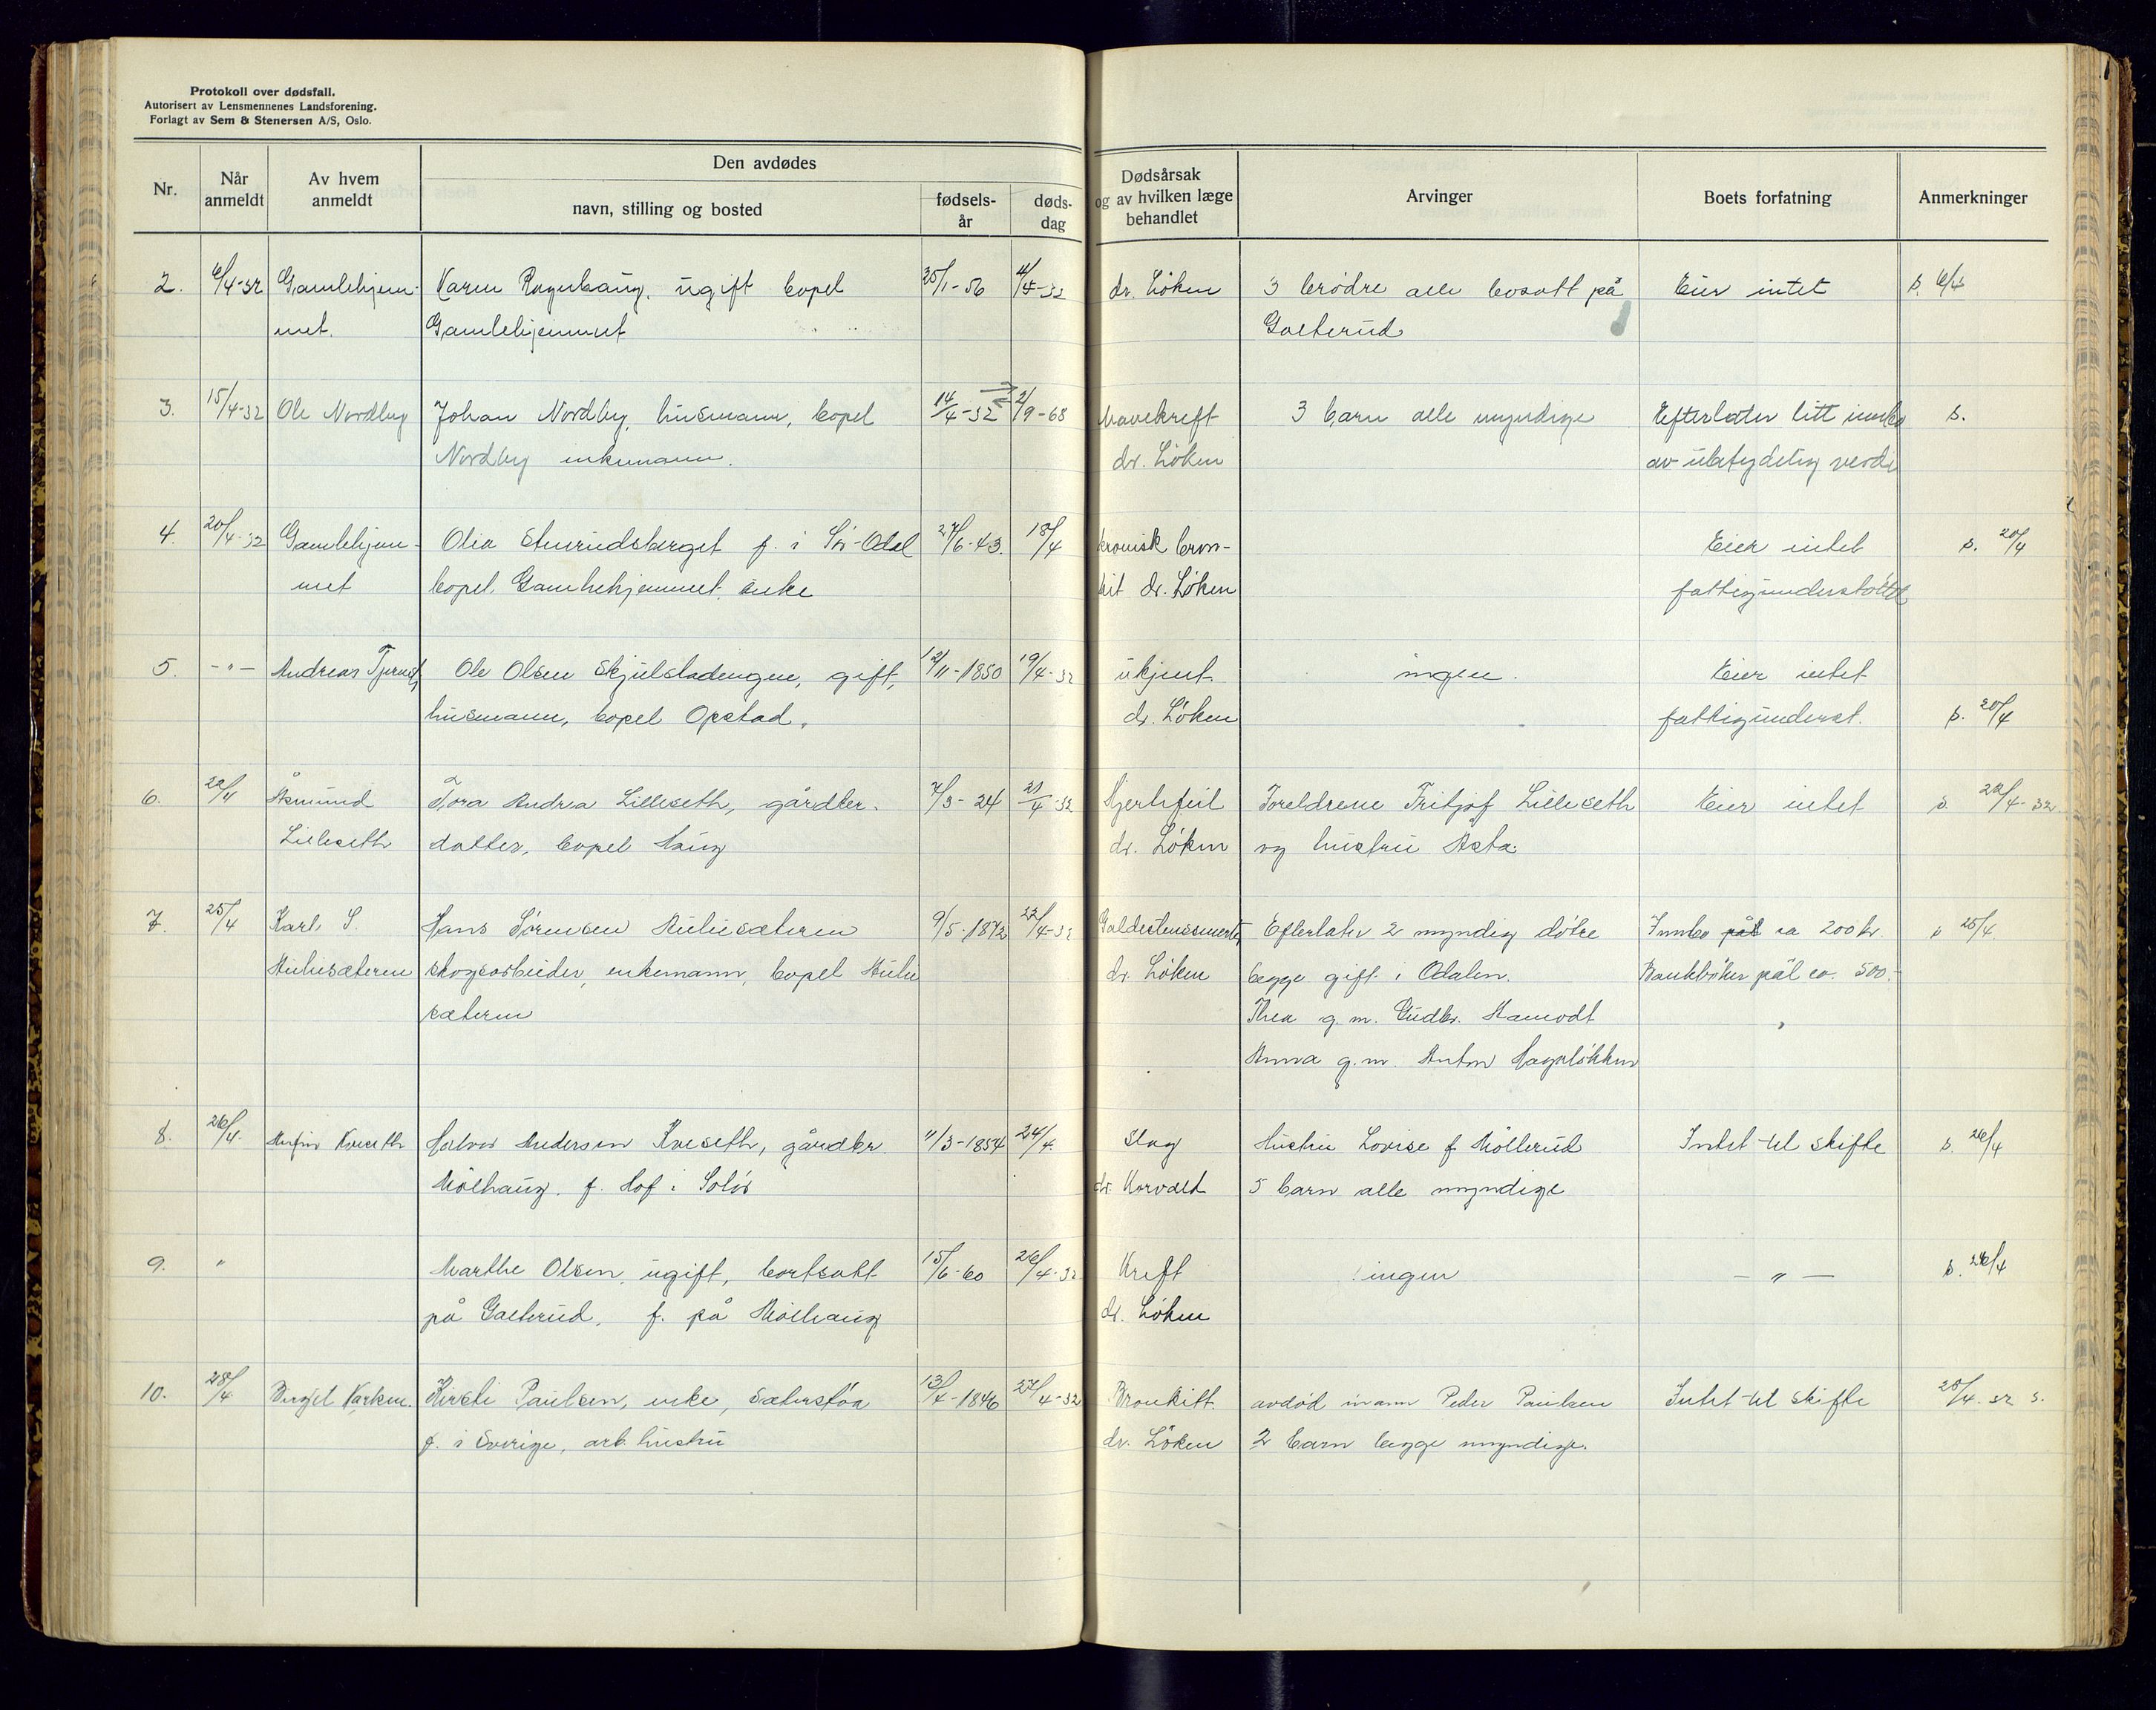 Protokoll over dødsfall.
Autorisert av Lensmennenes Landsforening.
Forlagt av Sem & Stenersen A/S, Oslo.
Nr. Når anmeldt Av hvem anmeldt Den avdødes navn, stilling og bosted fødsels-år døds-dag Dødsårsak og av hvilken læge behandlet Arvinger Boets forfatning Anmerkninger
2. 6/4-32 Gamlehjem- Karen bopel 25/1-56 4/4-32 dr. Löken 3 brödre alle bosatt på Eier intet s. 6/4
met. Gamlehjemmet Galterud
3. 15/4-32 Ole Nordby Johan Nordby, husmann, bopel 14/4-32 2/9-68 Mavekreft 3 barn alle myndige Efterlater litt innbo s.
Nordby enkemann. dr. Löken av ubetydelig verdi
4. 20/4-32 Gamlehjem- Olea Stenrudsberget f. i Sör-Odal 27/6-43. 18/4 kronisk bron- Eier intet s. 20/4
met bopel. Gamlehjemmet. enke kit dr. Löken fattigunderstöttet
5. -"- Andreas Ole Olsen Skjulstadengen, gift, 12/11-1850 19/4-32 ukjent ingen. Eier intet
husmann, bopel Opstad. dr. Löken fattigunderst. s. 20/4
6. 22/4 Åsmund Tora Andrea Lilleseth, gårdbr. 7/3-24 21/4-32 Hjertefeil Foreldrene Fritjof Lilleseth Eier intet s. 22/4-32
Lilleseth datter, bopel Haug dr. Löken og hustru Asta
7. 25/4 Karl S. Hans Sörensen 9/5-1872 22/4-32 Efterlater 2 myndig dötre Innbo ca 200 kr. s 25/4
skogsarbeider, enkemann, bopel dr. Löken begge gift i Odalen. Bankböker pål ca. 500.-
sæteren Thea g. m. Gudbr.
Anna g. m. Anton
8. 26/4. Kveseth Halvor Andersen Kveseth, gårdbr. 11/3-1854 24/4. Slag Hustru Lovise f. Möllerud Intet til skifte s. 26/4
f. Hof i Solör dr. Korvald 5 barn alle myndige
9. " Marthe Olsen, ugift, bortsatt 15/6-60 26/4-32 Kreft ingen - " - s. 26/4
på Galterud, f. på dr. Löken
10. 28/4 Kirsti Paulsen, enke, Sæterstöa 13/4-1846 27/4-32 Bronkitt. avdöd mann Peder Paulsen Intet til skifte 28/4-32 s.
f. i Sverige, arb. hustru dr. Löken 2 barn begge myndige.